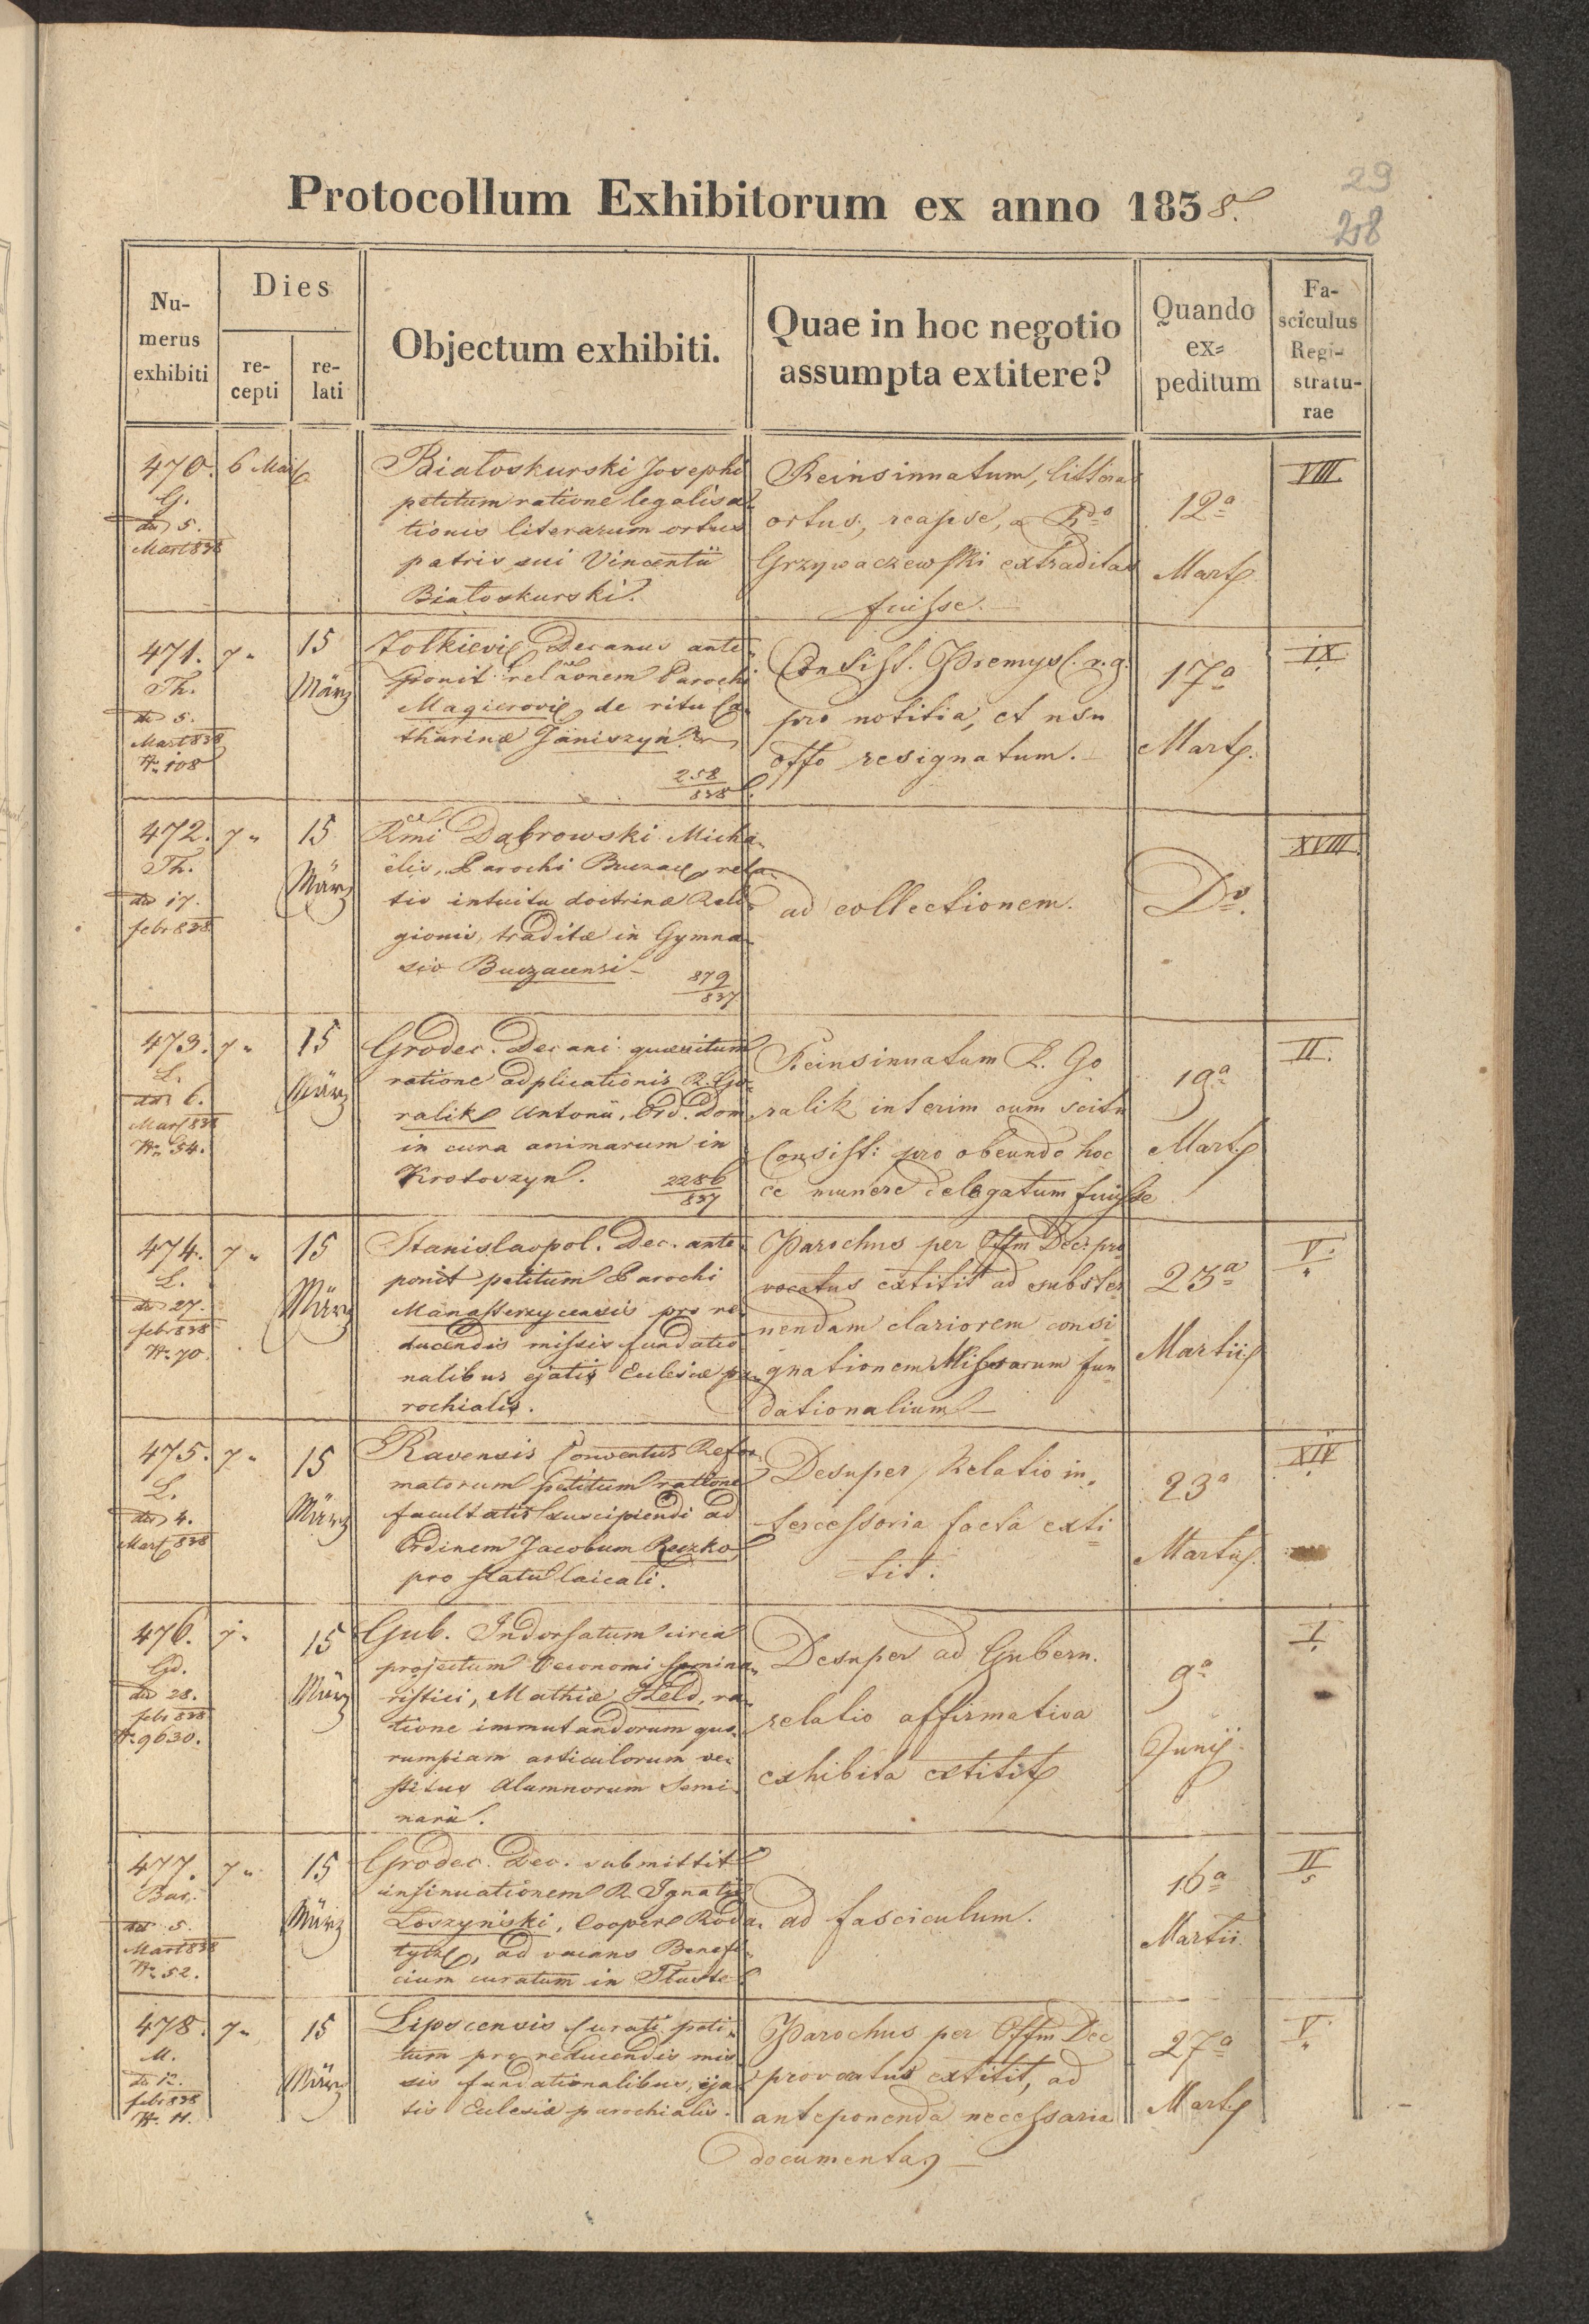 29
28
Protocollum Exhibitorum ex anno 1838.
Numerus exhibiti
Dies
recepti
relati
Objectum exhibiti.
Quae in hoc negotio
assumpta extitere?
Quando
ex=
peditum
Fa-
sciculus
Regi-
stratu-
rae
470.
G.
dto 5.
Mart 838
6 Mart
Białoskurski Josephi
petitum ratione legalisa-
tionis literarum ortus
patris sui Vincentii
Białoskurski.
Reinsinnatum, litteras
ortus, reapse, a Rdo
Grzywaczewski extraditas
fuisse.
12a
Mart.
VIII.
471.
Th.
dto 5.
Mart 838
No 108
7 "
15
März
Zolkievi Decanus ante
ponit relaonem Parochi
Magierovi, de ritu Ca-
tharinæ Janiszyn.
258
838
Consist. Premysl. r. g.
pro notitia, et usu
offo resignatum.
17a
Mart.
IX.
472.
Th.
dto 17.
febr 838
7 "
15
März
Rmi Dąbrowski Micha-
ëlis, Parochi Buczac, rela-
tio intuitu doctrinæ Reli-
gionis, traditæ in Gymna-
sio Buczacensi
879
837
ad collectionem.
Do.
XVIII.
473.
L.
dto 6.
Mart 838
No 54.
7 "
15
März
Grodec. Decani quæsitum
ratione adplicationis R. Go-
ralik Antonii, Ord. Dom
in cura animarum in
Krotoszyn.
2286
837
Reinsinuatum R. Go
ralik interim cum scitu
Consist: pro obeundo hoc
ce munere delegatum fuisse
19a
Mart.
II.
474.
L.
dto 27.
febr 838
No 70.
7 "
15
März
Stanislaopol. Dec. ante-
ponit petitum Parochi
Manasterzycensis pro re-
ducendis missis fundatio-
nalibus ejatis Eclesiæ pa-
rochialis.
Parochus per Offm Dec: pro
vocatus extitit ad subster
nendam clariorem consi
gnationem Missarum fun
dationalium
23a
Martii
V.
475.
L.
dto 4.
Mart 838
7 "
15
März
Ravensis Conventus Refor-
matorum petitum ratione
facultatis suscipiendi ad
Ordinem Jacobum Reczko
pro statu laicali.
Desuper Relatio in-
tercessoria facta exti
tit.
23a
Martii.
XIV
476.
Gd.
dto 28.
febr 838
No 9630.
7 "
15
März
Gub. Indorsatum circa
projectum Oeconomi semina-
ristici, Mathiæ Held, ra-
tione immutandorum quo-
rumpiam articulorum ve-
stitus Alumnorum Semi-
narii.
Desuper ad Gubern.
relatio affirmativa
exhibita extitit
9a
Junij
I.
477.
Bar.
dto 5.
Mart 838
No 52.
7 "
15
März
Grodec. Dec. submittit
insinuationem R. Ignatii
Łoszyński, Cooper Roda-
tyc, ad vacans Benefi-
cium curatum in Tłuste
ad fasciculum.
16a
Martii
II
478.
M.
dto 12.
febr 838
No 11.
7 "
15
März
Lipscensis Curati peti-
tum pro reducendis mis-
sis fundationalibus, eja-
tis Eclesiæ parochialis.
Parochus per Offm Dec
provocatus extitit, ad
anteponenda necessaria
documenta
27a
Mart.
V.